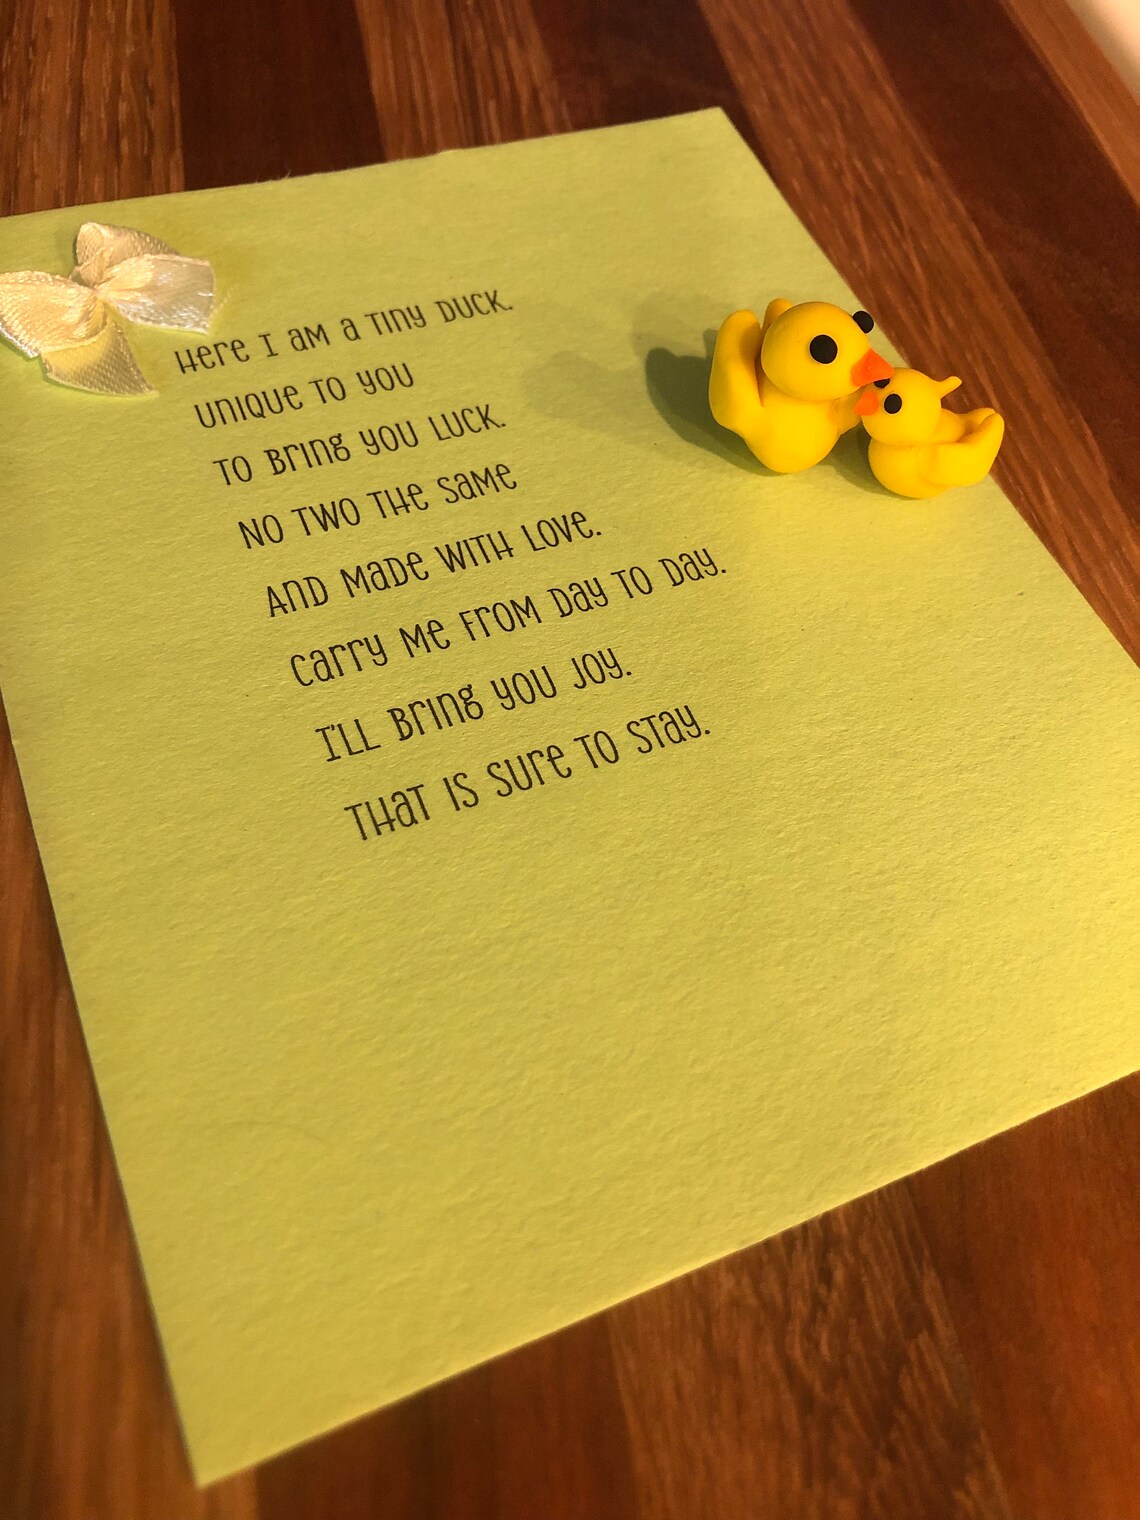 Here I am a tiny duck.
Unique to you
to bring you luck.
No two the same
and made with love.
Carry me from day to day.
I'll bring you joy.
That is sure to stay.